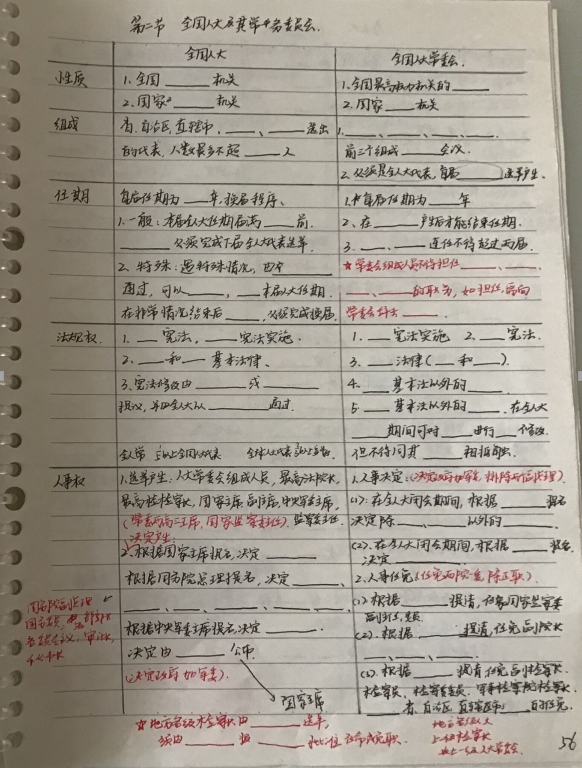 第二节 全国人大及其常务委员会.
全国人大 全国人大常委会.
性质 1.全国____机关 1.全国最高权力机关的____
2.国家____机关 2.国家____机关
组成 省、自治区、直辖市、____、____选出 1.____、____、____、____.
的代表,人数最多不超____人 前三个组成____会议.
2.必须是全人大代表,每届____选举产生.
任期 每届任期为____年,换届程序、 1.每届任期为____年
1.一般:本届全人大任期届满____前. 2、在____产生后才能结束任期.
____必须完成下届全人大代表选举. 3.____、____连任不得超过两届.
2.特殊:遇特殊情况,由全____ ☆常委会组成人员不得担任____、____、
通过,可以____,____本届人大任期. ____、____的职务,如担任,需向
在非常情况结束后____,必须完成换届. 常委会辞去____.
法规权. 1.____宪法,____宪法实施. 1.____宪法实施 2.____宪法.
2、____和____基本法律、 3.____法律(____和____).
3.宪法修改由____或____ 4.____基本法以外的____.
提议,并由全人大以____通过. 5.____基本法以外的____.在全人大
____期间可对____进行____修改.
但不得同其____相抵触.
人事权 1.选举产生:人大常委会组成人员,最高法院长, 1.人事决定:
最高检检察长,国家主席副主席,中央军委主席, (1).在全人大闭会期间,根据____提名
监察委主任. 决定除____、____以外的____.
决定产生:
2.根据国家主席提名,决定____ (2).在全人大闭会期间,根据____提名
决定____
根据国务院总理提名,决定____、 2.人事任免(任免两院一委,除正职).
____、____、____、____、____. (1)根据____提请,任免国家监察委
副主任,委员.
根据中央军委主席提名,决定____ (2).根据____提请,任免副院长
决定由____公布 ____、____、____.
(决定政府加军委). (3).根据____提请任免副检察长.
国家主席 检察员、检察委委员、军事检察院检察长.
____省、自治区、直辖市____的任免.
☆地方各级检察长由____选举,
须由____提____批准任命或免职.
地方各级人
上级检察长
上一级人大常委会.
56